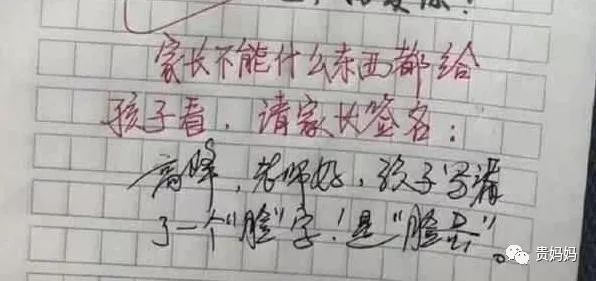 家长不能什么东西都给
孩子看，请家长签名：
高峰，老师好，孩子写漏
了一个“脸”字！是“脸
贵妈妈